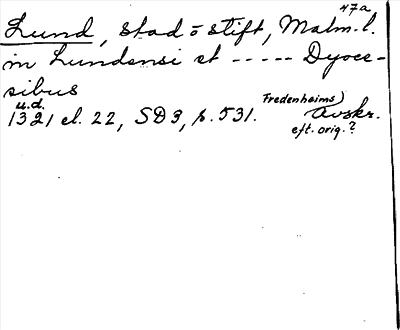 47a
Lund, stad o stift, Malm. l.
in Lundensi et ----- Dyoce-
sibus
u.d.
1321 el. 22, SD3, s. 531. Fredenheims) Avskr.
eft. orig.?